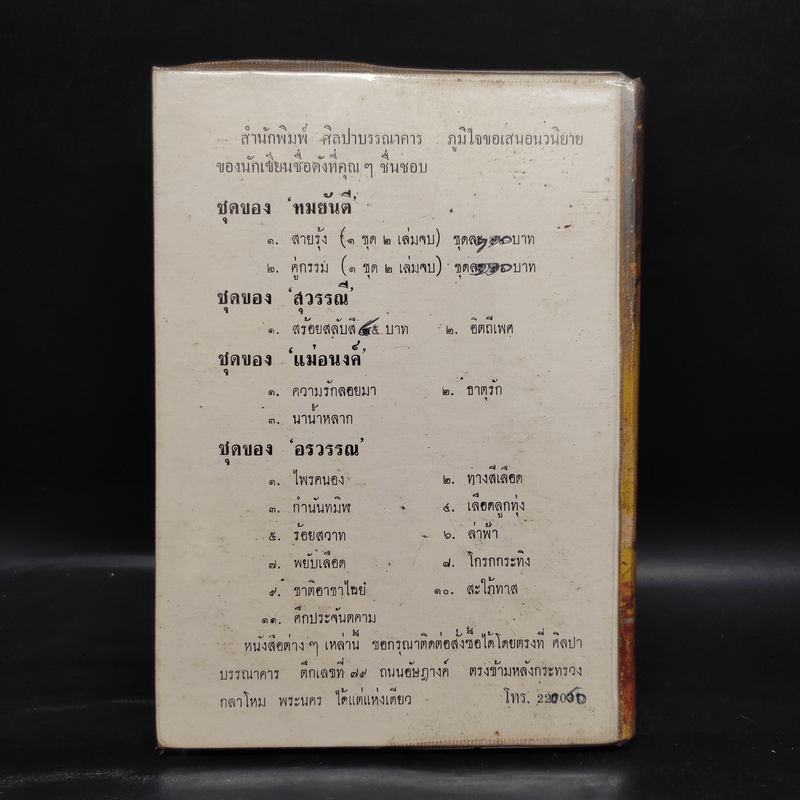 สำนักพิมพ์ ศิลปาบรรณาคาร ภูมิใจขอเสนอนวนิยาย
ของนักเขียนชื่อดังที่คุณ ๆ ชื่นชอบ
ชุดของ 'ทมยันตี'
๑. สายรุ้ง (๑ ชุด ๒ เล่มจบ) ชุดละ บาท
๒. คู่กรรม (๑ ชุด ๒ เล่มจบ) ชุดละ บาท
ชุดของ 'สุวรรณี'
๑. สร้อยสลับสี บาท ๒. อิตถีเพศ
ชุดของ 'แม่อนงค์'
๑. ความรักลอยมา ๒. ธาตุรัก
๓. นาน้ำหลาก
ชุดของ 'อรวรรณ'
๑. ไพรคนอง ๒. ทางสีเลือด
๓. กำนันทมิฬ ๔. เลือดลูกทุ่ง
๕. ร้อยสวาท ๖. ล่าฟ้า
๗. พยับเลือด ๘. โกรกกระทิง
๙. ชาติอาชาไนย ๑๐. สะใภ้ทาส
๑๑. ศึกประจันตคาม
หนังสือต่าง ๆ เหล่านี้ ขอกรุณาติดต่อสั่งซื้อได้โดยตรงที่ ศิลปา
บรรณาคาร ตึกเลขที่ ๗๙ ถนนอัษฎางค์ ตรงข้ามหลังกระทรวง
กลาโหม พระนคร ได้แต่แห่งเดียว โทร.